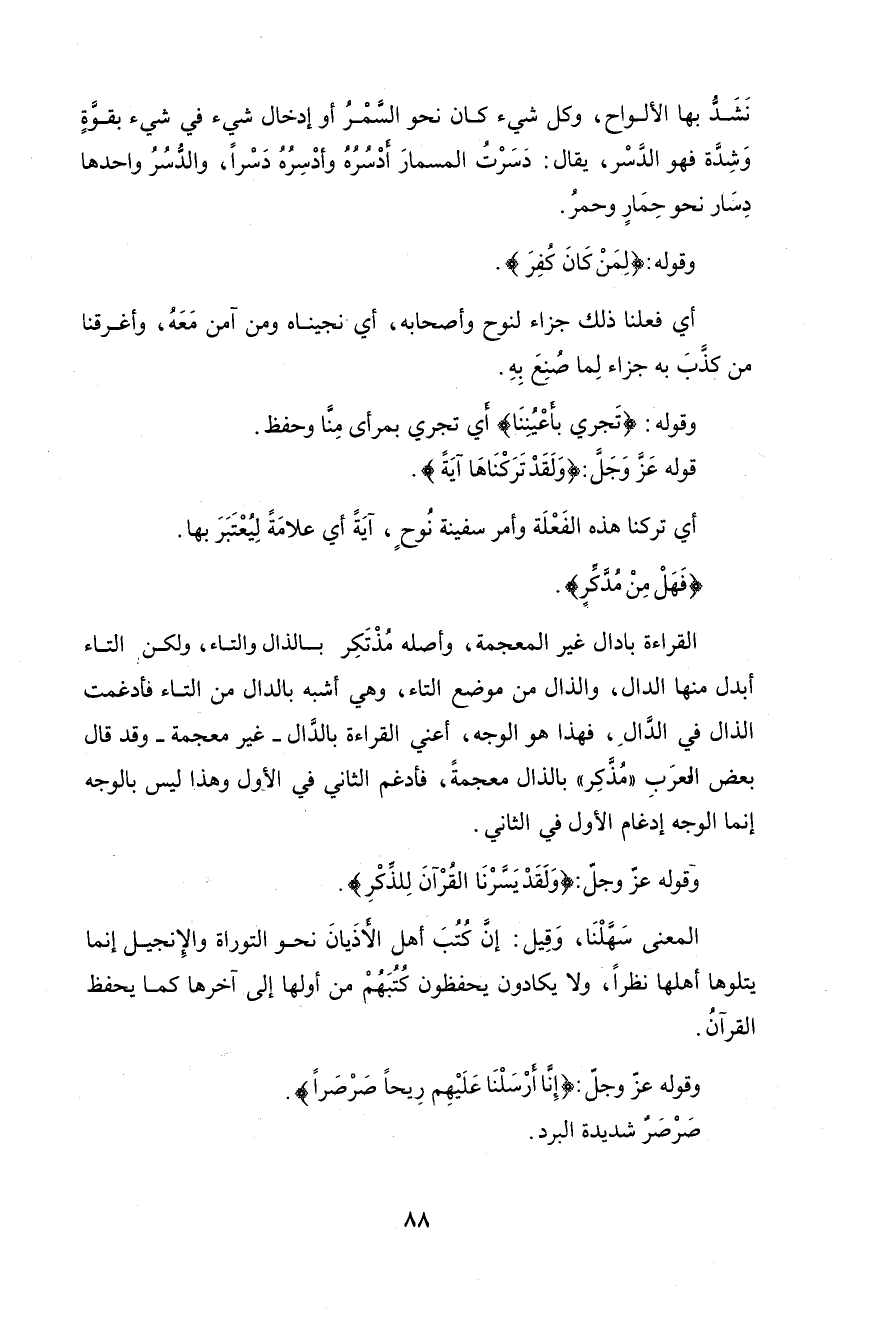 نَشَدُّ بها الألواح، وكل شيء كان نحو السَّمْرُ أو إدخال شيء في شيء بقوَّةٍ
وَشِدَّة فهو الدَّسْر، يقال: دَسَرْتُ المسمارَ أَدْسُرُهُ وأدْسِرُهُ دَسْراً، والدُّسُرُ واحدها
دِسَار نحو حِمَارٍ وحمرُ.
وقوله:﴿لِمَنْ كَانَ كُفِرَ﴾.
أي فعلنا ذلك جزاء لنوح وأصحابه، أي نجيناه ومن آمن مَعَهُ، وأغرقنا
من كذَّبَ به جزاء لِما صُنِعَ بِهِ.
وقوله: ﴿تَجري بأَعْيُنِنَا﴾ أَي تجري بمرأى مِنَّا وحفظ.
قوله عَزَّ وَجَلَّ:﴿وَلَقَدْ تَرَكْنَاهَا آيَةً﴾.
أي تركنا هذه الفَعْلَة وأمر سفينة نُوحٍ، آيَةً أي علامَةً لِيُعْتَبَرَ بها.
﴿فَهَلْ مِنْ مُدَّكِّرٍ﴾.
القراءة بادال غير المعجمة، وأصله مُذْتَكِر بالذال والتاء، ولكن التاء
أبدل منها الدال، والذال من موضع التاء، وهي أشبه بالدال من التاء فأدغمت
الذال في الدَّالِ، فهذا هو الوجه، أعني القراءة بالدَّال ـ غير معجمة ـ وقد قال
بعض العرَبِ «مُذَّكِر» بالذال معجمةً، فأدغم الثاني في الأول وهذا ليس بالوجه
إنما الوجه إدغام الأول في الثاني.
وقوله عزّ وجلّ:﴿وَلَقَدْ يَسَّرْنَا القُرْآنَ لِلذِّكْرِ﴾.
المعنى سَهَّلْنَا، وَقِيل: إنَّ كُتُبَ أهل الأَدْيانَ نحو التوراة والإنجيل إنما
يتلوها أهلها نظراً، ولا يكادون يحفظون كُتُبَهُمْ من أولها إلى آخرها كما يحفظ
القرآنُ.
وقوله عزّ وجلّ:﴿إِنَّا أَرْسَلْنَا عَلَيْهِم رِيحاً صَرْصَراً﴾.
صَرْصَرٌ شديدة البرد.
٨٨